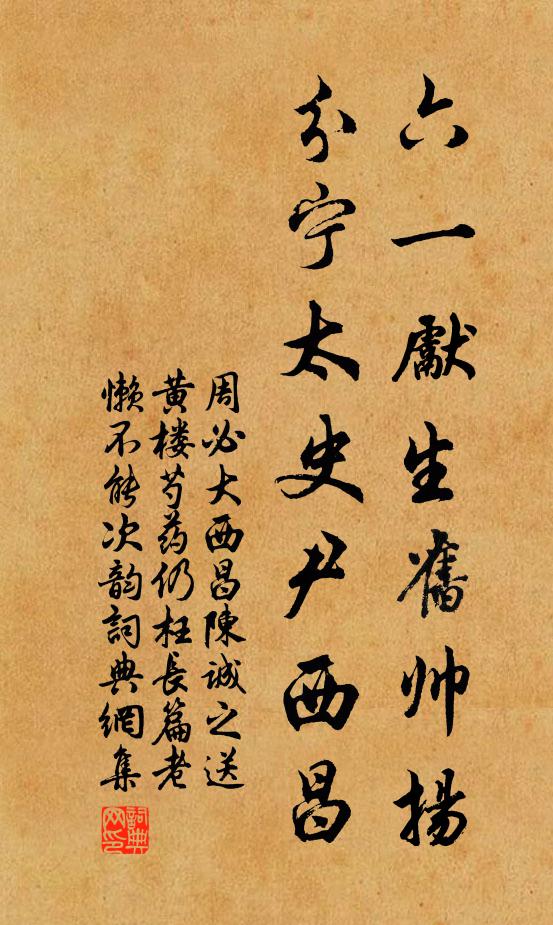 六一獻生舊帅揚
分宁太史尹西昌
周必大西昌陳诚之送
黄楼芍药仍枉長篇老
懒不能次韵詞典網集
詞典网印